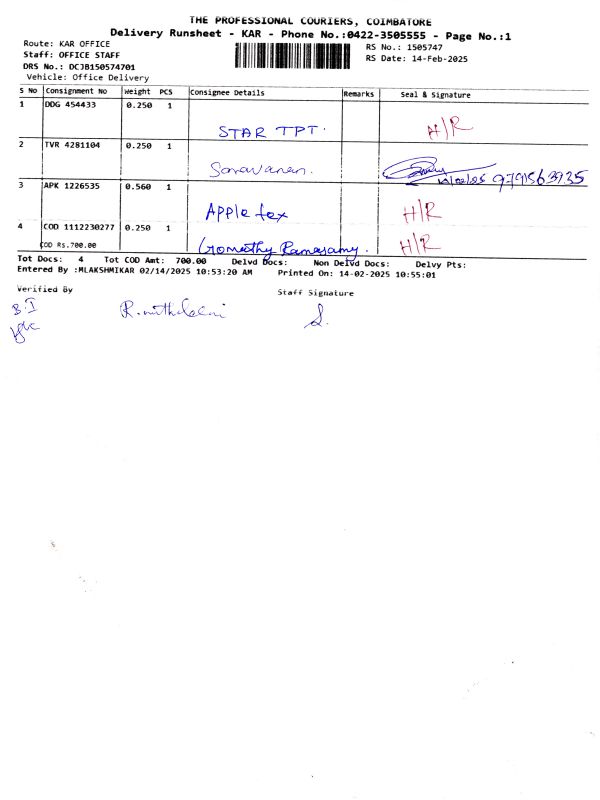 THE PROFESSIONAL COURIERS, COIMBATORE
Delivery Runsheet - KAR - Phone No.:0422-3505555 - Page No.:1
Route: KAR OFFICE
Staff: OFFICE STAFF
DRS No.: DCJB150574701
Vehicle: Office Delivery
RS No.: 1505747
RS Date: 14-Feb-2025
S No Consignment No Weight PCS Consignee Details Remarks Seal & Signature
1 DDG 454433 0.250 1
STAR TPT. H/R
2 TVR 4281104 0.250 1
Saravanan. 9791563935
3 APK 1226535 0.560 1
Apple tex H/R
4 COD 1112230277 0.250 1 H/R
COD Rs.700.00 Gomathy Ramasamy.
Tot Docs: 4 Tot COD Amt: 700.00 Delvd Docs: Non Delvd Docs: Delvy Pts:
Entered By :MLAKSHMIKAR 02/14/2025 10:53:20 AM Printed On: 14-02-2025 10:55:01
Verified By Staff Signature